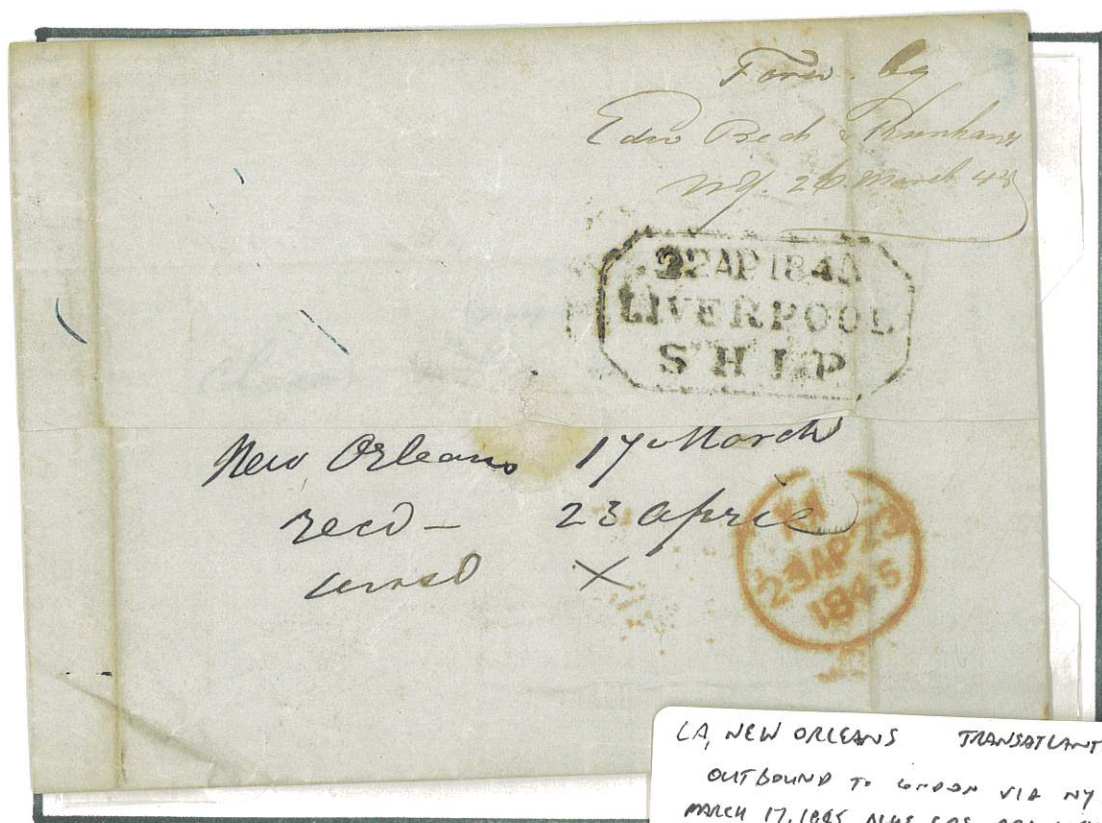 Forw. by
Edw Beck &
NY. 26 March 45
22 AP 184
LIVERPOOL
SHIP
New Orleans 17 March
recd - 23 april
X
23 AP 23
1845
LA, NEW ORLEANS TRANSATLANT
OUTBOUND TO LONDON VIA NY
MARCH 17, 1845 BLUE CDS